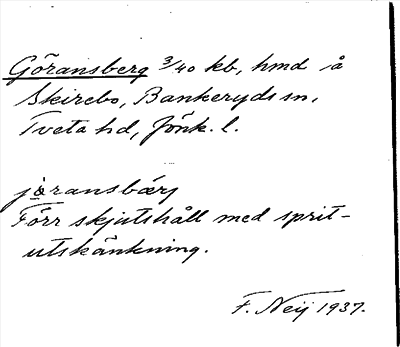 Göransberg 3/40 kb, hmd å
Skirebo, Bankeryds sn,
Tveta hd, Jönk. l.
jöransbärj
Förr skjutshåll med sprit-
utskänkning.
F. Neij 1937.